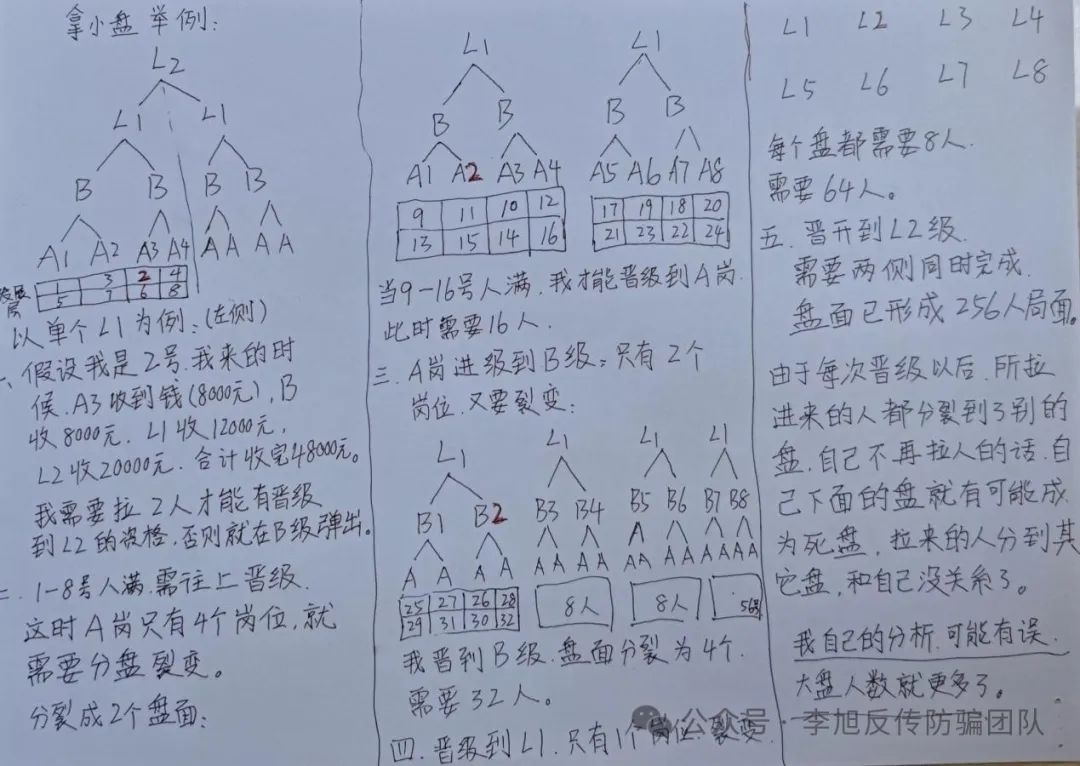 拿小盘举例:
L2
L1 L1
B B B B
A1 A2 A3 A4 A A A A
发展层
1 3 2 4
5 7 6 8
以单个L1为例:(左侧)
一、假设我是2号.我来的时
候.A3收到钱(8000元),B
收8000元.L1收12000元,
L2收20000元.合计收完48000元。
我需要拉2人才能有晋级
到L2的资格,否则就在B级弹出。
二、1-8号人满.需往上晋级.
这时A岗只有4个岗位,就
需要分盘裂变。
分裂成2个盘面:
L1 L1
B B B B
A1 A2 A3 A4 A5 A6 A7 A8
9 11 10 12 17 19 18 20
13 15 14 16 21 23 22 24
当9-16号人满.我才能晋级到A岗.
此时需要16人.
三、A岗进级到B级:只有2个
岗位.又要裂变:
L1 L1 L1 L1
B1 B2 B3 B4 B5 B6 B7 B8
A A A A A A A A A A A A A A A A
25 27 26 28
29 31 30 32
8人 8人
我晋到B级.盘面分裂为4个.
需要32人。
四.晋级到L1.只有1个岗位.裂变
L1 L2 L3 L4
L5 L6 L7 L8
每个盘都需要8人.
需要64人。
五.晋升到L2级.
需要两侧同时完成.
盘面已形成256人局面。
由于每次晋级以后.所拉
进来的人都分裂到了别的
盘.自己不再拉人的话.自
己下面的盘就有可能成
为死盘,拉来的人分到其
它盘,和自己没关系了。
我自己的分析.可能有误.
大盘人数就更多了。
公众号·李旭反传防骗团队